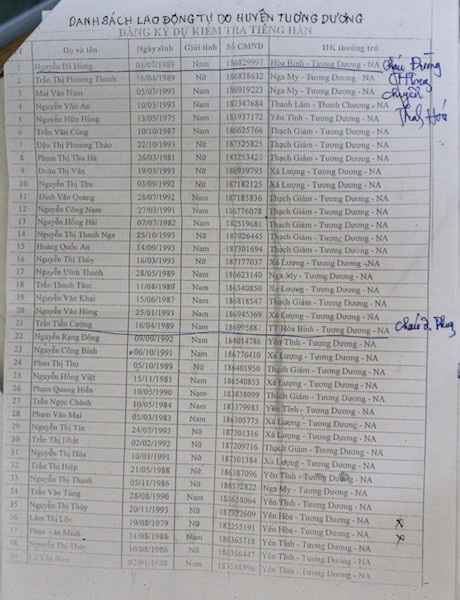 DANH SÁCH LAO ĐỘNG TỰ DO HUYỆN TƯƠNG DƯƠNG
ĐĂNG KÝ DỰ KIỂM TRA TIẾNG HÀN
T Họ và tên Ngày sinh Giới tính Số CMND HK thường trú
1 Nguyễn Bá Hùng 01/07/1989 Nam 186829997 Hòa Bình - Tương Dương - NA
2 Trần Thị Phương Thanh 16/04/1989 Nữ 186838632 Nga My - Tương Dương - NA
3 Mai Văn Nam 05/07/1993 Nam 186919223 Nga My - Tương Dương - NA
4 Nguyễn Văn An 10/03/1993 Nam 187347684 Thanh Lâm - Thanh Chương - NA
5 Nguyễn Hữu Hùng 13/05/1975 Nam 181937172 Yên Tĩnh - Tương Dương - NA
6 Trần Văn Công 10/10/1987 Nam 186625766 Thạch Giám - Tương Dương - NA
7 Đậu Thị Phương Thảo 22/10/1993 Nữ 187325825 Thạch Giám - Tương Dương - NA
8 Phạm Thị Thu Hà 26/03/1981 Nữ 183253427 Thạch Giám - Tương Dương - NA
9 Đoàn Thị Vân 19/03/1993 Nữ 186939793 Xá Lượng - Tương Dương - NA
10 Nguyễn Thị Thu 03/09/1992 Nữ 187182125 Xá Lượng - Tương Dương - NA
11 Đinh Văn Quang 28/07/1992 Nam 187185836 Thạch Giám - Tương Dương - NA
12 Nguyễn Công Nam 27/03/1991 Nam 186776078 Thạch Giám - Tương Dương - NA
13 Nguyễn Hồng Hải 07/07/1982 Nam 182519681 Thạch Giám - Tương Dương - NA
14 Nguyễn Thị Thanh Nga 25/10/1993 Nữ 187026445 Thạch Giám - Tương Dương - NA
15 Hoàng Quốc An 14/09/1993 Nam 187301694 Thạch Giám - Tương Dương - NA
16 Nguyễn Thị Thủy 16/03/1993 Nữ 187177037 Xá Lượng - Tương Dương - NA
17 Nguyễn Đình Thanh 28/05/1989 Nam 186623140 Nga My - Tương Dương - NA
18 Trần Thanh Tâm 11/08/1989 Nam 186540850 Xá Lượng - Tương Dương - NA
19 Nguyễn Văn Khai 15/06/1987 Nam 186818547 Thạch Giám - Tương Dương - NA
20 Nguyễn Văn Hùng 25/01/1993 Nam 186945369 Xá Lượng - Tương Dương - NA
21 Trần Tiến Cường 16/04/1989 Nam TT Hòa Bình - Tương Dương - NA
22 Nguyễn Rạng Đông 09/09/1992 Nam 184014786 Yên Tĩnh - Tương Dương - NA
23 Nguyễn Công Bình 06/10/1991 Nam 186776410 Xá Lượng - Tương Dương - NA
24 Phan Thị Thơ 05/10/1989 Nữ 186401950 Thạch Giám - Tương Dương - NA
25 Nguyễn Hồng Việt 15/11/1981 Nam 186540853 Xá Lượng - Tương Dương - NA
26 Phạm Quang Hiển 10/05/1990 Nam 183838099 Thạch Giám - Tương Dương - NA
27 Trần Ngọc Chánh 10/05/1984 Nam 187379983 Yên Tĩnh - Tương Dương - NA
28 Phạm Văn Mai 05/03/1983 Nam 186305775 Xá Lượng - Tương Dương - NA
29 Nguyễn Thị Tín 24/07/1993 Nữ 187301316 Xá Lượng - Tương Dương - NA
30 Trần Thị Nhật 02/02/1992 Nữ 187209716 Thạch Giám - Tương Dương - NA
31 Nguyễn Thị Hòa 10/03/1991 Nữ 187301384 Xá Lượng - Tương Dương - NA
32 Trần Thị Hiệp 21/05/1988 Nữ 186387096 Yên Tĩnh - Tương Dương - NA
33 Nguyễn Thị Thanh 05/11/1986 Nữ 186572822 Nga My - Tương Dương - NA
34 Trần Văn Tùng 28/08/1990 Nam 186658064 Yên Tĩnh - Tương Dương - NA
35 Nguyễn Thị Thủy 20/11/1993 Nữ 187322609 Yên Hòa - Tương Dương - NA
36 Lâm Thị Lộc 19/08/1979 Nữ 182255191 Yên Hòa - Tương Dương - NA x
37 Phan văn Minh 31/08/1988 Nam 186365718 Yên Tĩnh - Tương Dương - NA x
38 Nguyễn Thị Thủy 10/08/1986 Nữ 186366447 Yên Tĩnh - Tương Dương - NA
39 Lê Văn Nam 02/01/1988 Nam 183588890 Yên Tĩnh - Tương Dương - NA